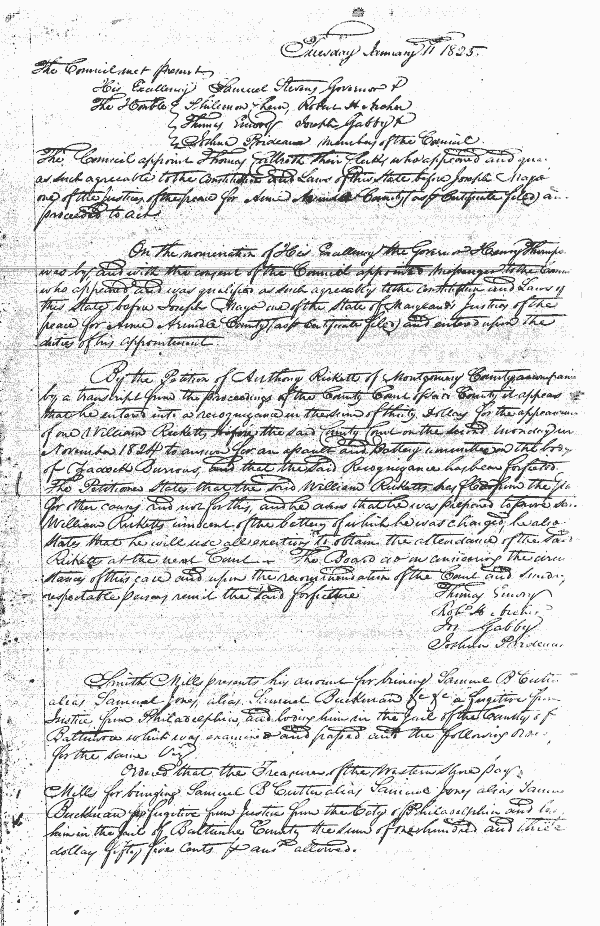 Tuesday January 11 1825.
The Council met present
His Excellency Samuel Stevens Governor &
The Honble Philemon Chew, Robert H Archer
Thomas Emory Joseph Gabby &
Joshua Prideaux members of the Council
The Council appoint Thomas Culbreth their Clerk, who appeared and qua
as such agreeable to the Constitution and Laws of this state before Joseph Mayo
one of the justices of the peace for Anne Arundel County (as p Certificate filed) an
proceeded to act
On the nomination of His Excellency the Governor Henry Thomps
was by and with the consent of the Council appointed Messenger to the Coun
who appeared and was qualified as such agreeably to the Constitution and Laws of
this State before Joseph Mayo one of the State of Maryland's Justices of the
peace for Anne Arundel County (as p Certificate filed) and entered upon the
duties of his appointment
By the Petition of Anthony Ricketts of Montgomery County accompan
by a transcript from the proceedings of the County Court of said County it appears
that he entered into a recognizance in the sum of thirty Dollars for the appearan
of one William Ricketts before the said County Court on the second Monday in
November 1824 to answer for an assault and battery committed on the body
of Burrous, and that the said Recognizance has been forfeited.
The Petitioner States that the said William Ricketts has fled from the Sta
for other causes and not for this, and he avers that he was prepared to prove
William Ricketts innocent of the battery of which he was charged, he also
states that he will use all exertions to obtain the attendance of the said
Ricketts at the next Court. The Board on considering the circu
stances of this case and upon the recommendation of the Court and sundry
respectable persons remit the said forfeiture
Thomas Emory
Robt H Archer
Jos Gabby
Joshua Prideaux
Smith Mills presents his account for bringing Samuel B Cutter
alias Samuel Jones, alias Samuel Buckman &c &c a fugitive from
Justice from Philadelphia, and lodging him in the Jail of the County of
Baltimore which was examined and passed and the following order
for the same Viz
Ordered that the Treasurer of the Western Shore pay
Mills for bringing Samuel B Cutter alias Samuel Jones alias Samue
Buckman a fugitive from Justice from the City of Philadelphia and lod
him in the Jail of Baltimore County the sum of one hundred and three
dollars fifty five cents allowed.